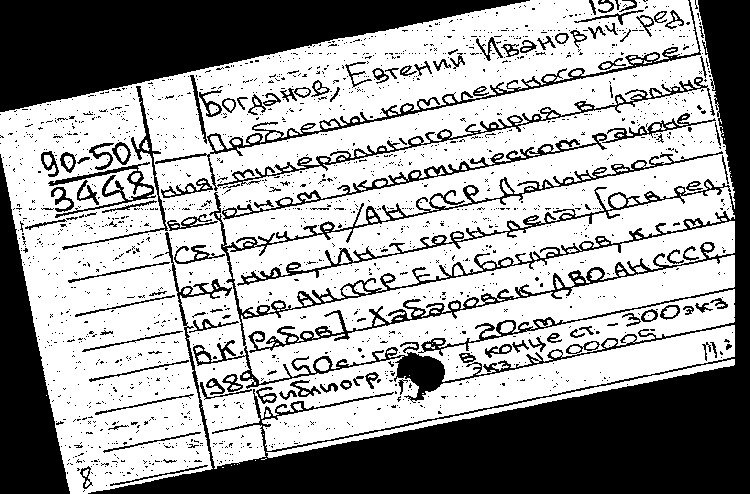 1515
Богданов, Евгений Иванович, ред.
Проблемы комплексного освое-
90-50К
3448
ния минерального сырья в Дальне-
восточном экономическом районе:
Сб. науч. тр. / АН СССР. Дальневост.
отд-ние, Ин-т горн. дела; [Отв. ред.
чл.-кор. АН СССР Е.И. Богданов, к.г.-м.н.
В.К. Рябов]. - Хабаровск: ДВО АН СССР,
1989. - 150 с.: граф.; 20 см.
Библиогр. в конце ст. - 300 экз.
ДСП Экз. N 000005.
8